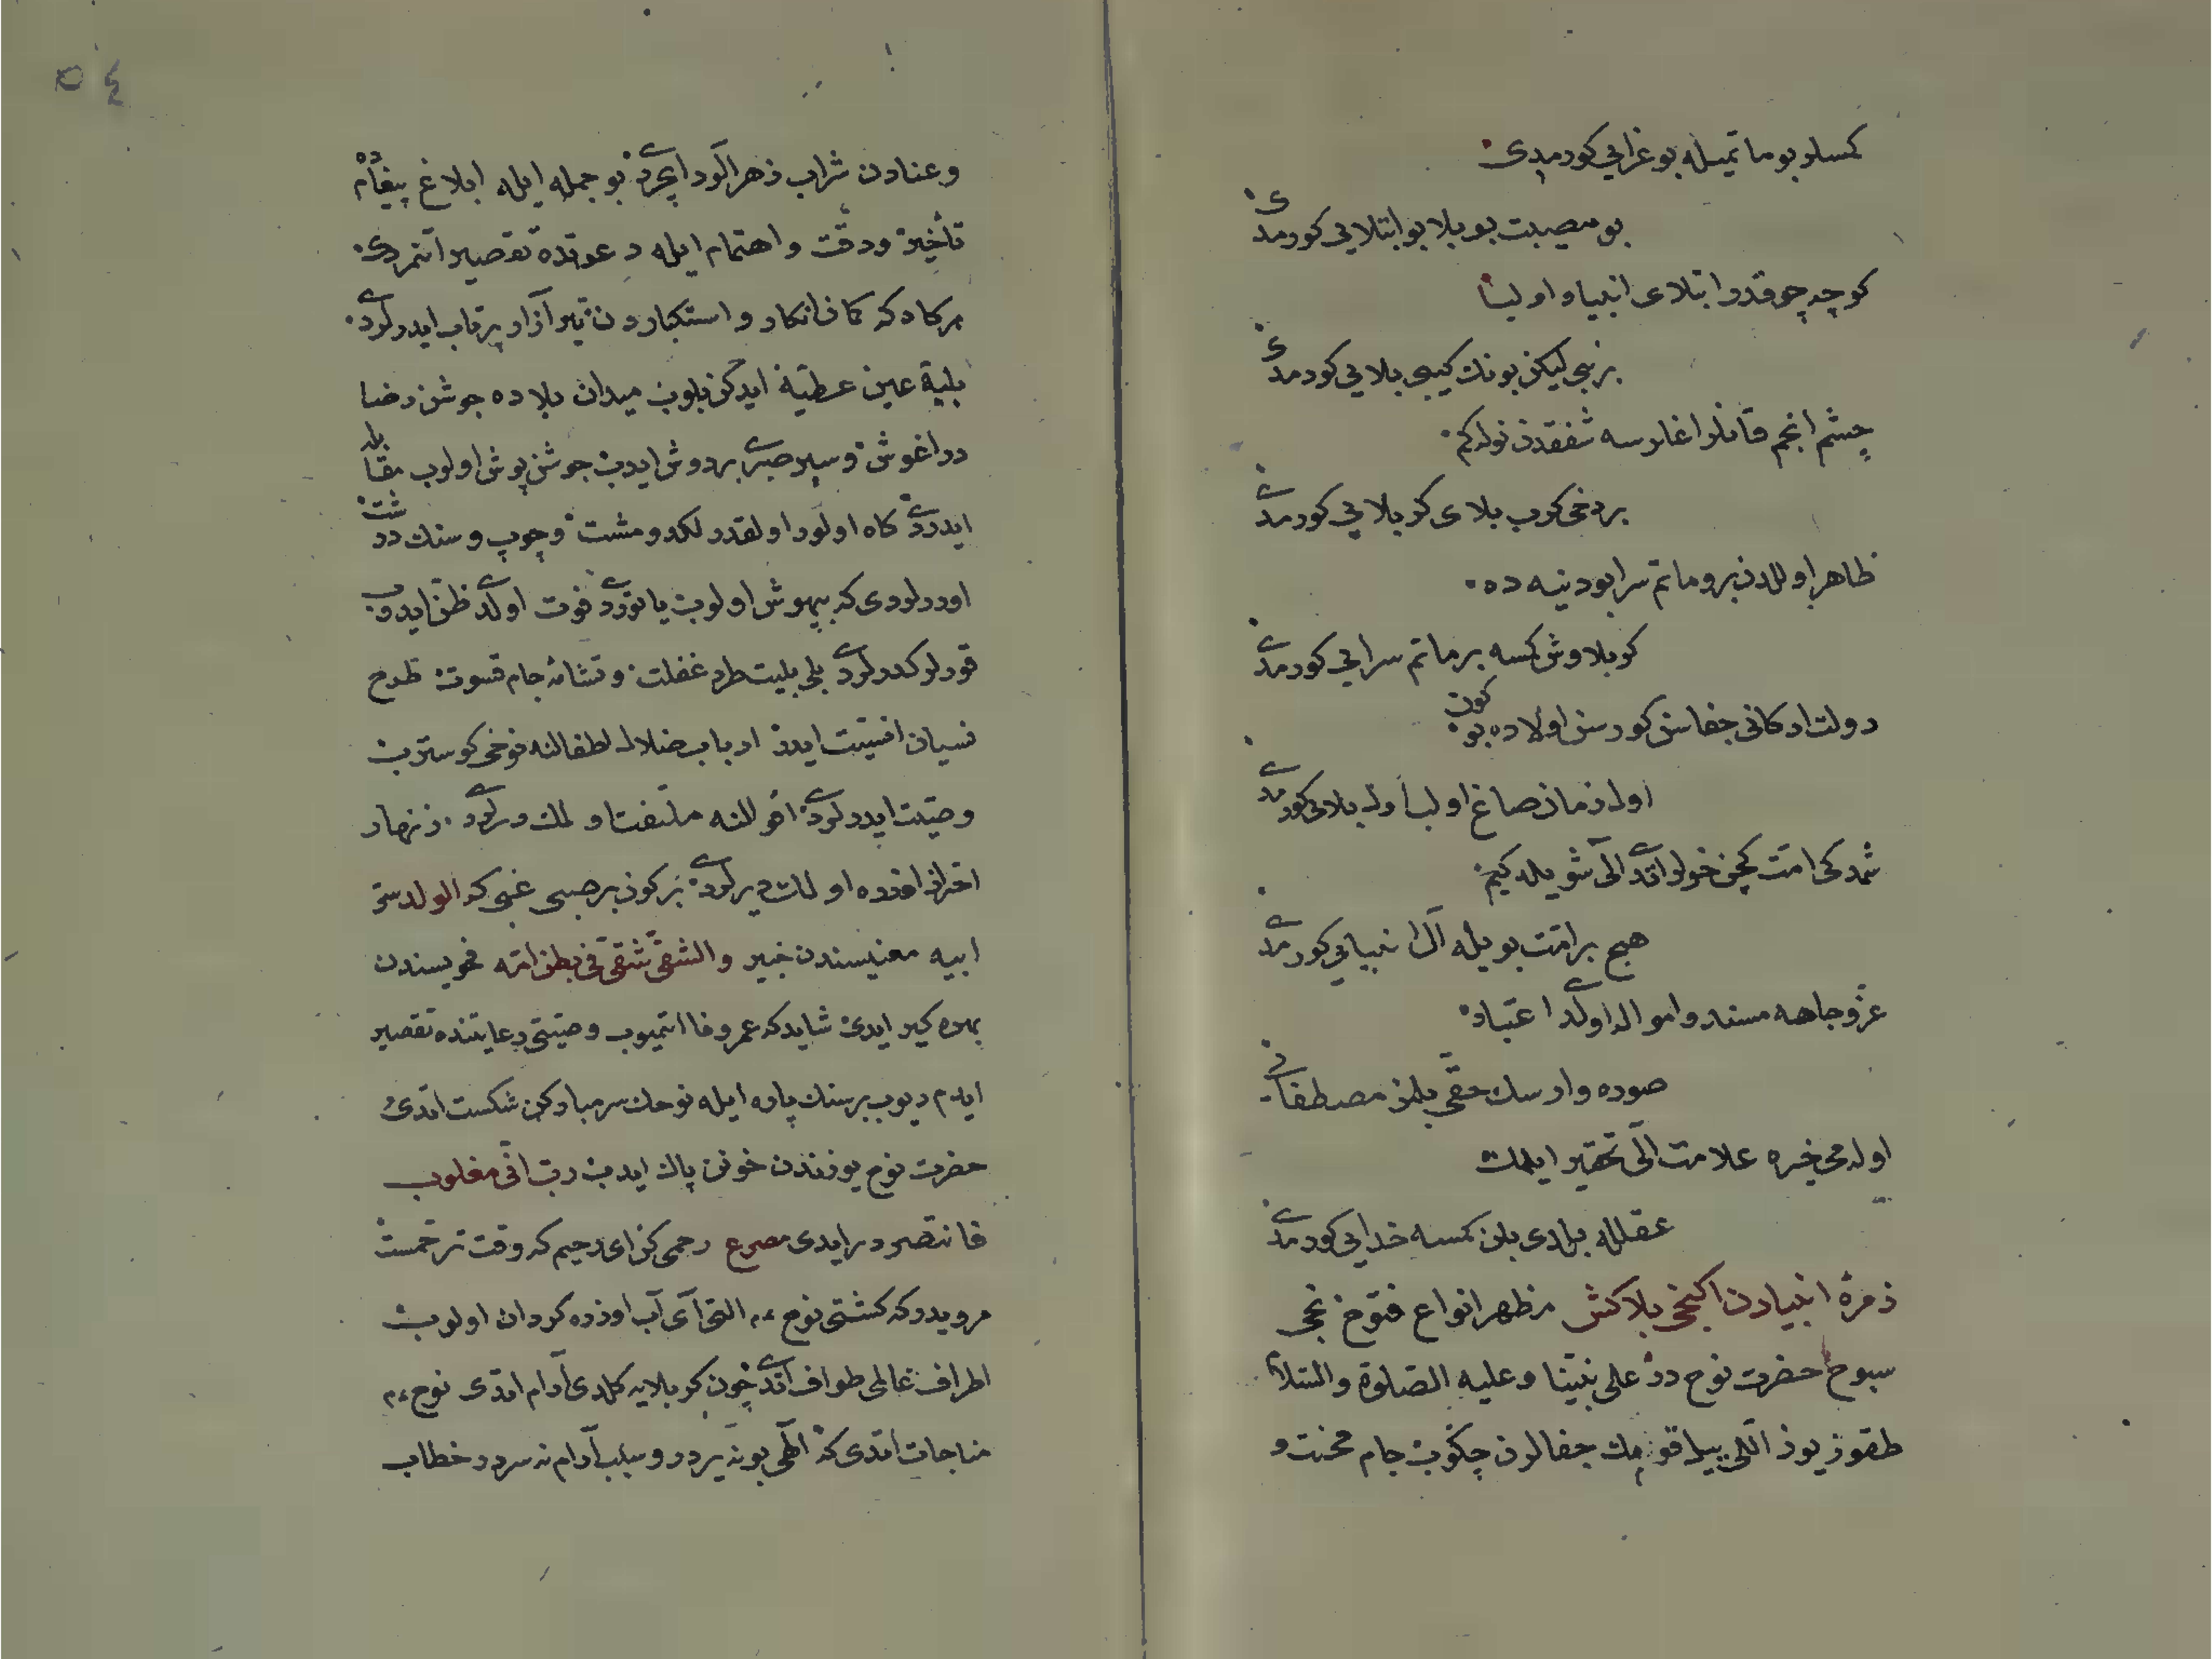 كمسلر بو ماتميله بو عزايی كورمدی
بو مصيبت بو بلا بو ابتلايی كورمدی
كرچه چوقدر ابتلای انبيا و اوليا
بربی ليكن بونك كيبی بلايی كورمدی
چشم انجم قانلر اغلرسه شفقدن نوله كم
بر دخی كرب بلای كربلايی كورمدی
ظاهر اوللدن برو ماتم سرا بو دنيه ده
كربلاوش كمسه بر ماتم سرايی كورمدی
دولت اركانی جفاسن كورسن اولاده بو كون
اول زمان صاغ اولب اول بلايی كورمدی
شمدكی امت كچن خولر اتدی الی شويله كيم
هيچ بر امت بويله آل انبيايی كورمدی
عز و جاهه مسند و امواله اولدی اعتبار
صوده وارسك حقی بلمز مصطفايی
اول محی خيره علامت الی تحقير ايلمك
عقلله بلدی بلن كمسه خدايی كورمدی
زمرهٔ انبيادن ايكنجی بلاكش مظهر انواع فتوح نجی
سبوح حضرت نوح در علی نبينا و عليه الصلوة و السلام
طقوز يوز اللی ييل قومنك جفالرن چكوب جام محنت و
و عنادن شراب زهرآلود ايچردی بو جمله ايله ابلاغ پيغامده
تأخير و دقت و اهتمام ايله دعوتده تقصير اتمزدی
هركاه كه كافر انكار و استكباردن تير آزار پرتاب ايدرلردی
بليه عين عطيه ايدكن بلوب ميدان بلاده جوشن رضا
در اغوش و سپر صبری بر دوش ايدب جوشن پوش اولوب مقابله
ايدردی كاه اولور اولقدر لكد و مشت و چوب و سنك درشت
اوررلردی كه بيهوش اولوب ياتوردی فوت اولدی ظن ايدوب
قورلر كدرلردی بلی بليت طرد غفلت و نشانه جام قسوت طرح
نسيان انسيت ايدر ارباب ضلال اطفالنه نوحی كوسترب
وصيت ايدرلردی اقوالنه ملتفت اولمك ديرلردی زنهار
احترازاوزره اولك ديرلردی بر كون بر صبی غبی كه الولد سر
ابيه معنيسندن خبير و الشقی شقی فی بطن امه فحويسندن
بهره كير ايدی شايد كه عمر وفا ايتميوب وصيتی رعايتنده تقصير
ايدم ديوب بر سنك پاره ايله نوحك سر مباركن شكست اتدی
حضرت نوح يوزندن خونن پاك ايدب رب انی مغلوب
فانتصر دير ايدی مصرع رحمی كن ای رحيم كه وقت ترحمست
مرويدر كه كشتی نوح ع م التی آی آب اوزره كردان اولوب
اطراف عالمی طواف اتدی چون كربلايه كلدی آرام اتدی نوح ع م
مناجات اتدی كه الهی بو نه يردر و سبب آرام نه سردر خطاب